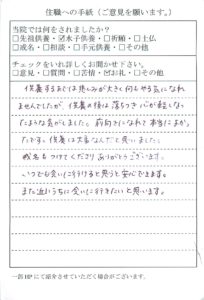 住職への手紙（ご意見を願います。）
当院では何をされましたか？
□先祖供養・☑水子供養・□祈願・□上仏
□戒名・□相談・□手元供養・□その他
チェックをいれ詳しくお聞かせ下さい。
□意見・□質問・□苦情・☑お礼・□その他
供養するまでは悲しみが大きく何もやる気になれ
ませんでしたが、供養の後は落ちつき心が軽くなっ
たような気がしました。前向きになれて本当によかっ
たです。供養は大事なんだと思いました。
戒名もつけてくださりありがとうございます。
いつでも会いに行けると思うと安心できます。
また近いうちに会いに行きたいと思います。
一部HPにて紹介させていただく場合がございます。